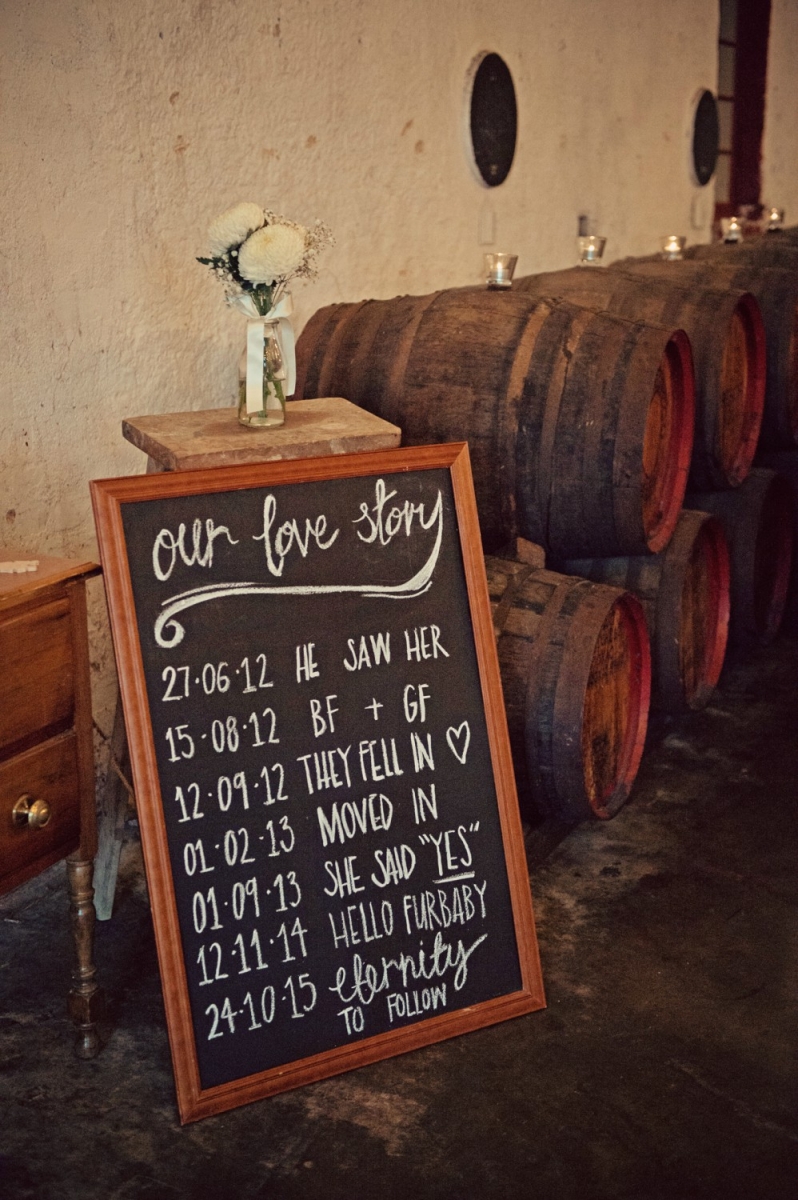 our love story
27·06·12 HE SAW HER
15·08·12 BF + GF
12·09·12 THEY FELL IN ♡
01·02·13 MOVED IN
01·09·13 SHE SAID "YES"
12·11·14 HELLO FURBABY
24·10·15 eternity
TO FOLLOW